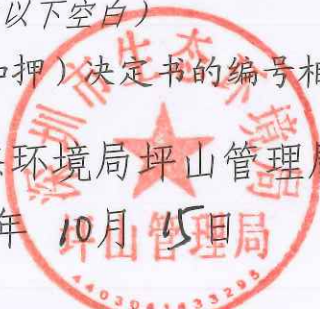 以下空白）
押）决定书的编号相
环境局坪山管理局
年 10月 15日
深圳市生态环境局
坪山管理局
4403041433295